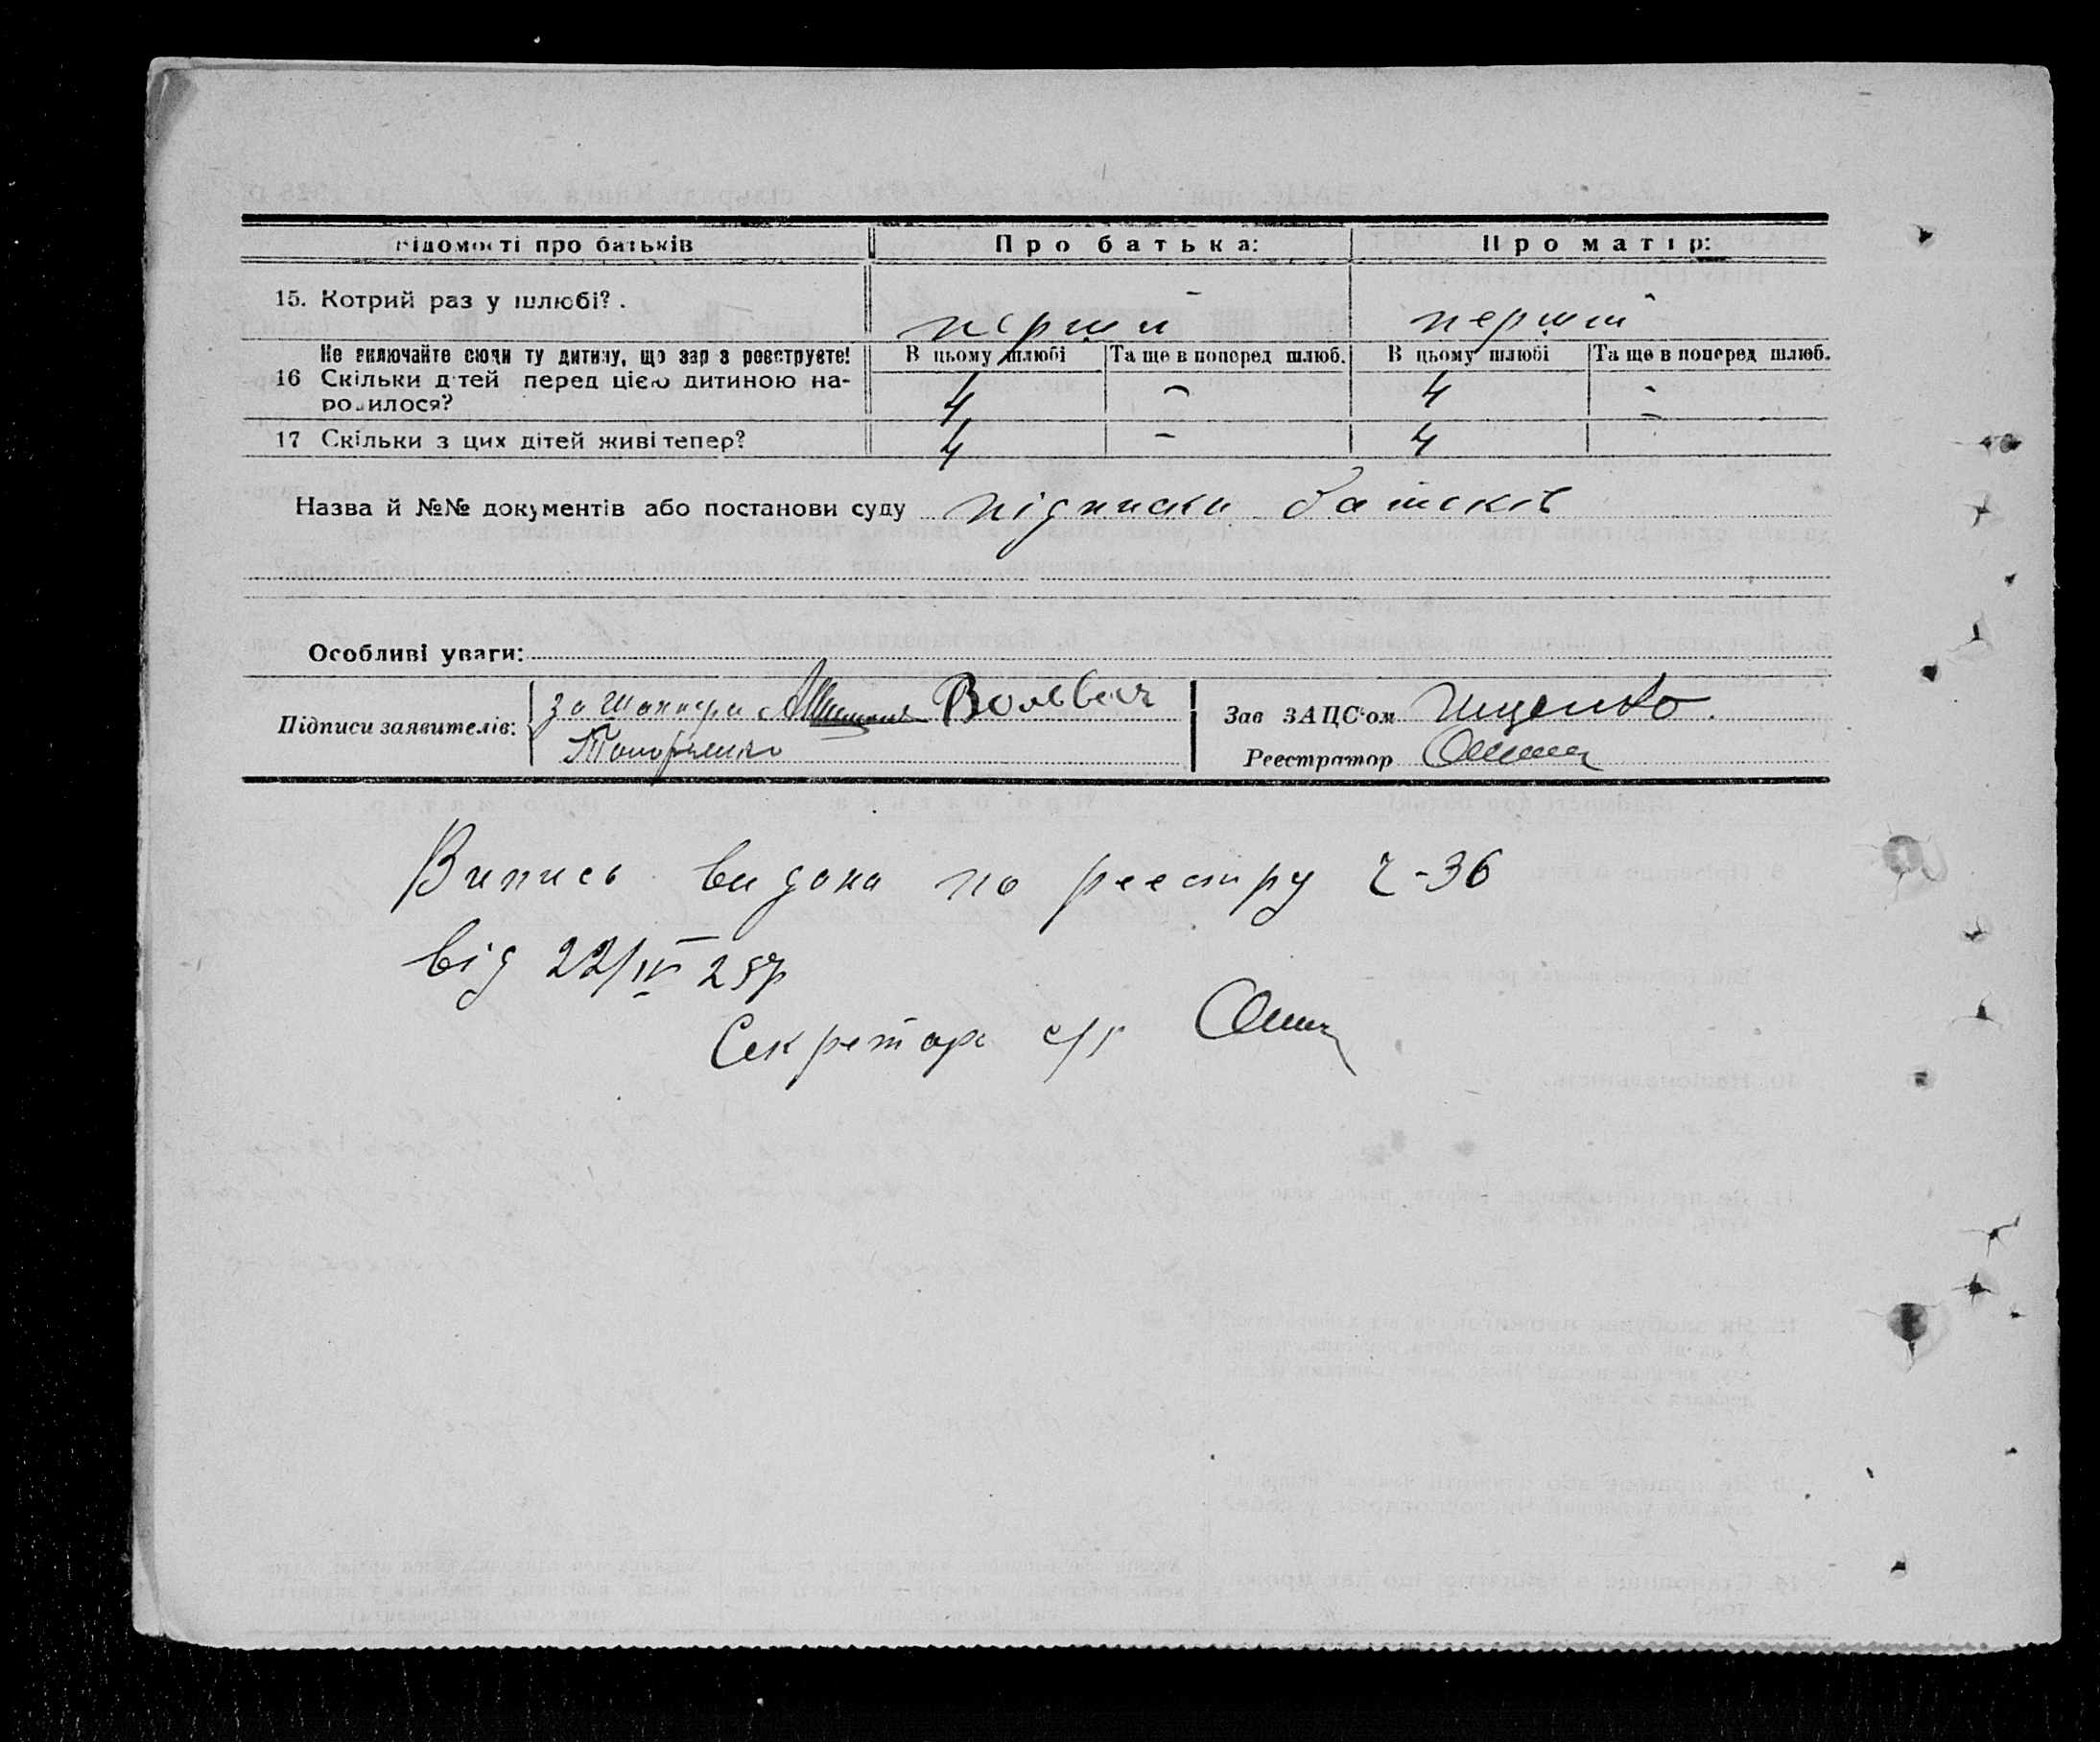 Відомості про батьків Про батька: Про матір:
15. Котрий раз у шлюбі? . перший перший
Не включайте сюди ту дитину, що зараз реєструєте! В цьому шлюбі Та ще в поперед шлюб. В цьому шлюбі Та ще в поперед шлюб.
16 Скільки дітей перед цією дитиною на-
родилося? 4 - 4 -
17 Скільки з цих дітей живі тепер? 4 - 4 -
Назва й №№ документів або постанови суду підписки батьків
Особливі уваги:
Підписи заявителів: за Вольвач
Зав ЗАЦС'ом Іщенко.
Реєстратор
Випись видана по реестру Ч-36
від 22/IV
Секретарь с/р